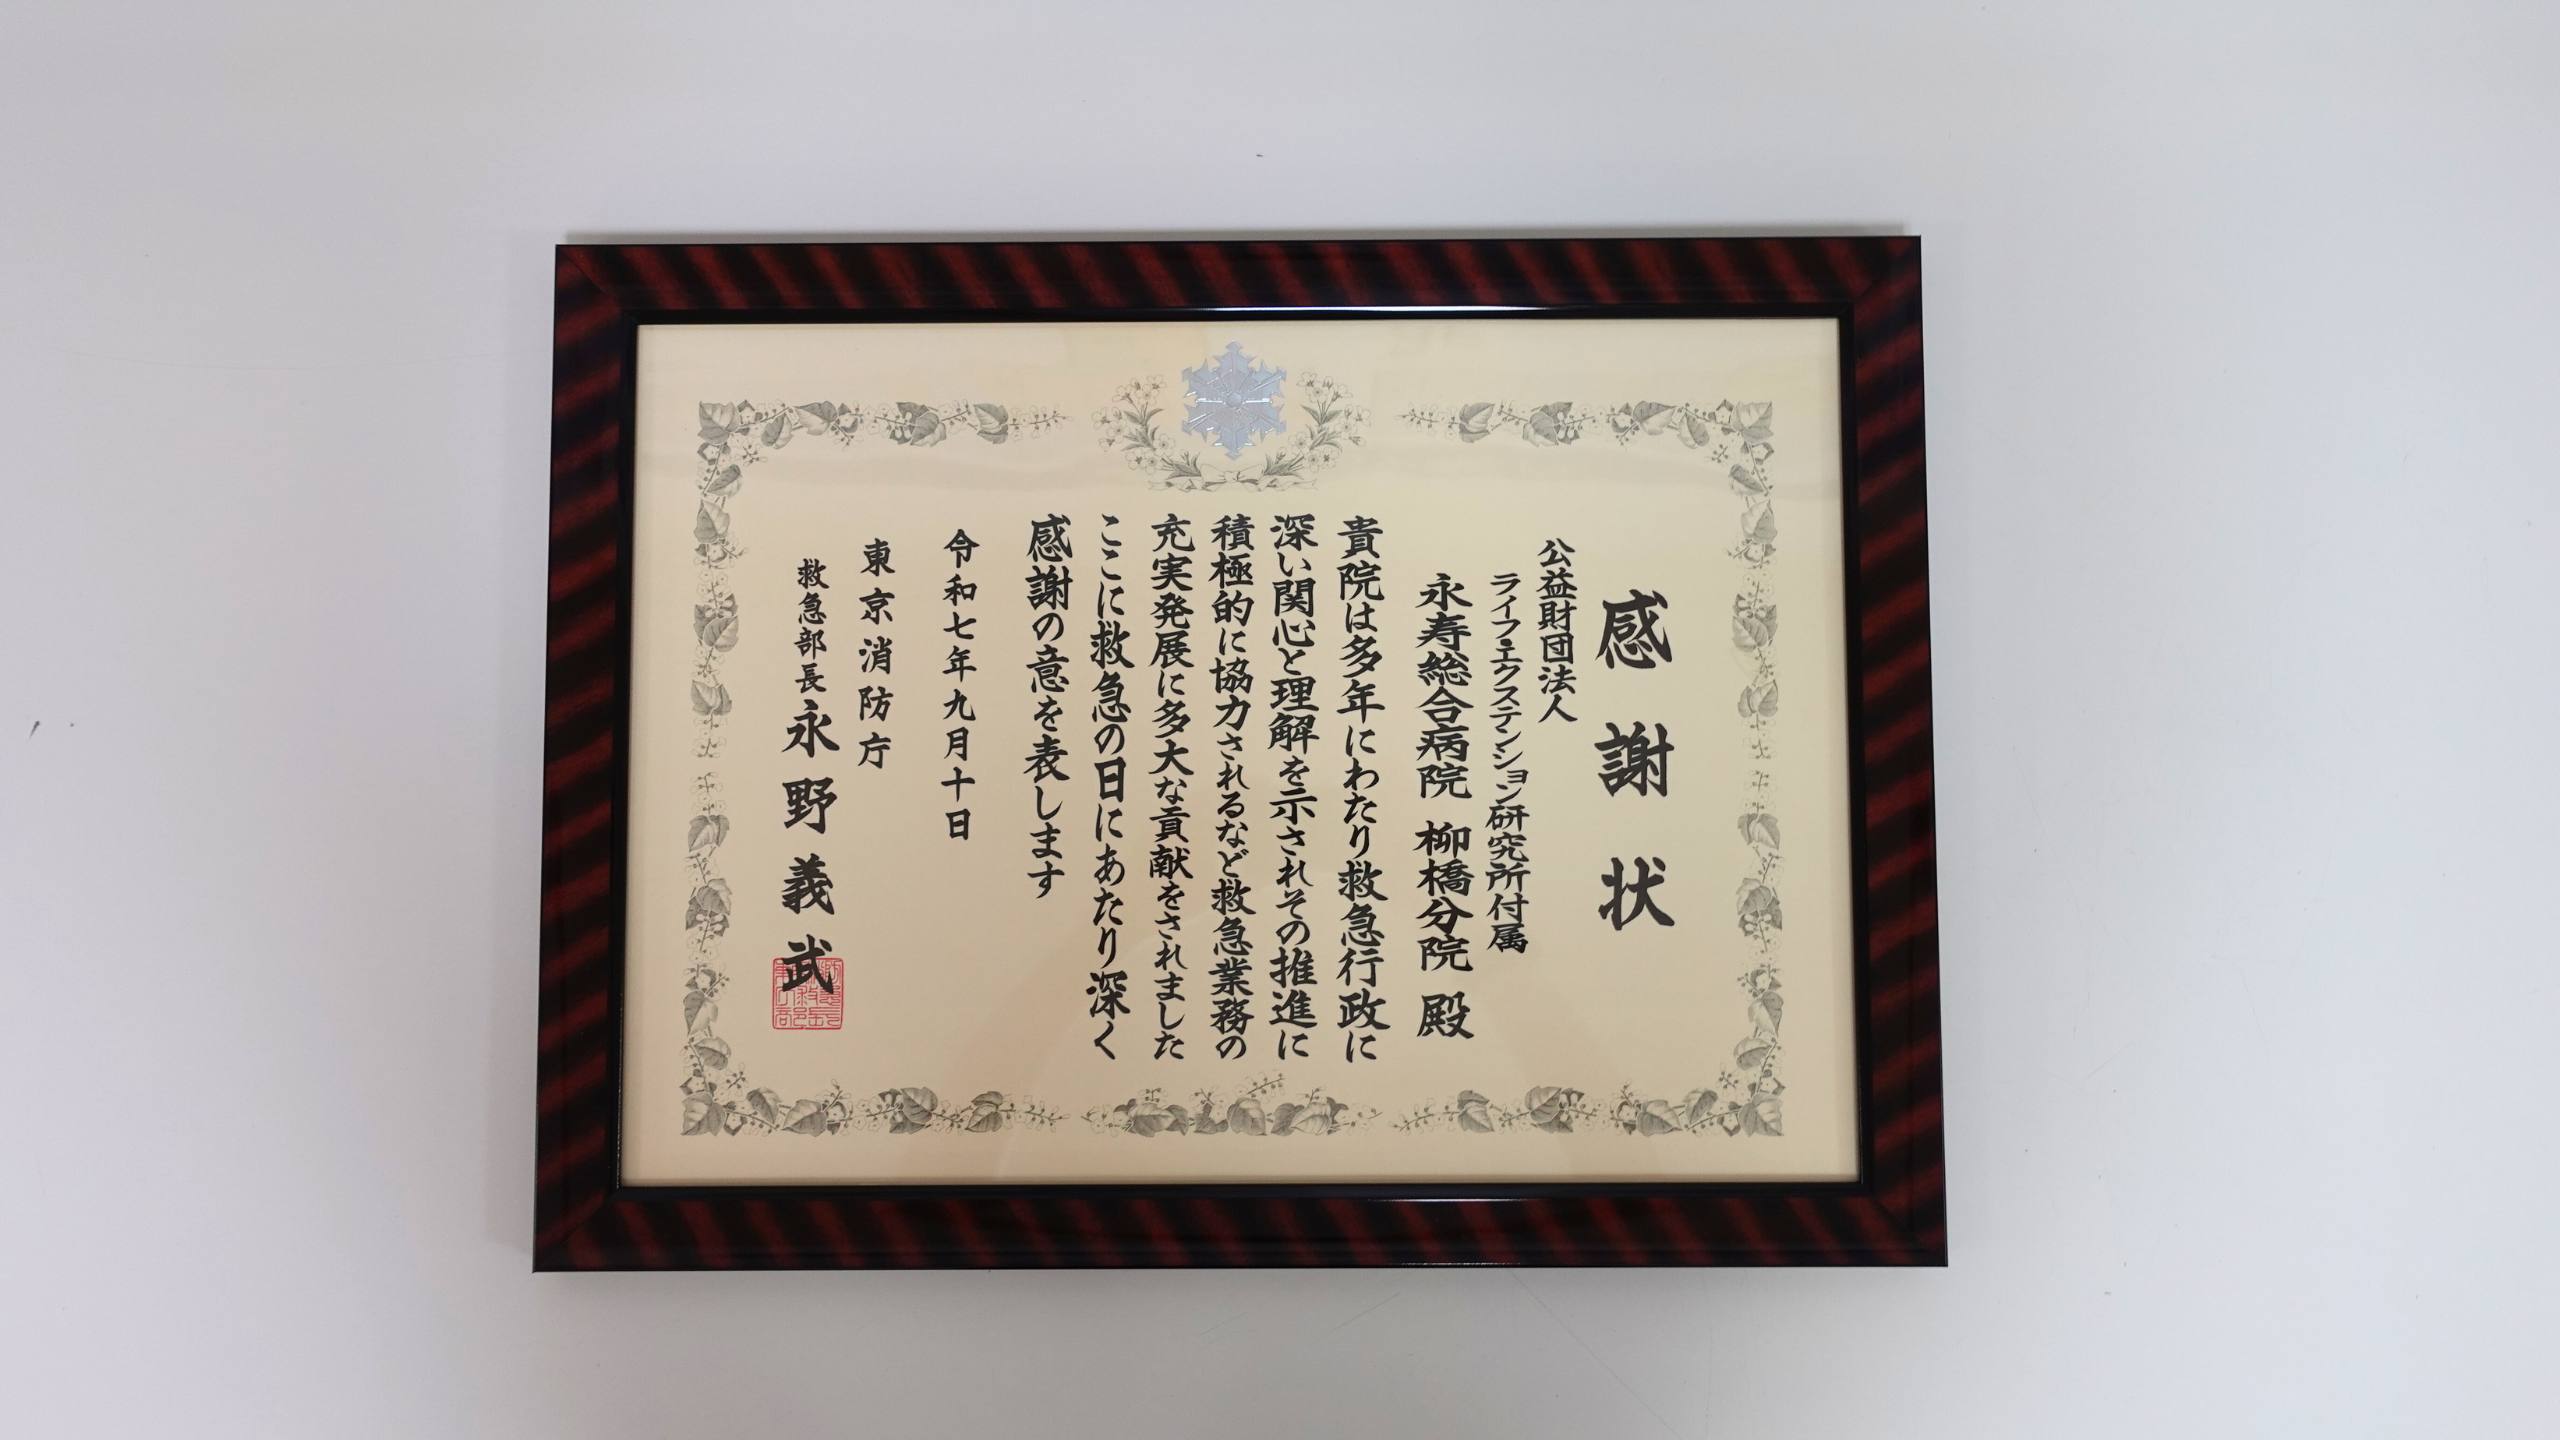 感謝状
公益財団法人
ライフ・エクステンション研究所付属
永寿総合病院 柳橋分院 殿
貴院は多年にわたり救急行政に
深い関心と理解を示されその推進に
積極的に協力されるなど救急業務の
充実発展に多大な貢献をされました
ここに救急の日にあたり深く
感謝の意を表します
令和七年九月十日
東京消防庁
救急部長 永野義武